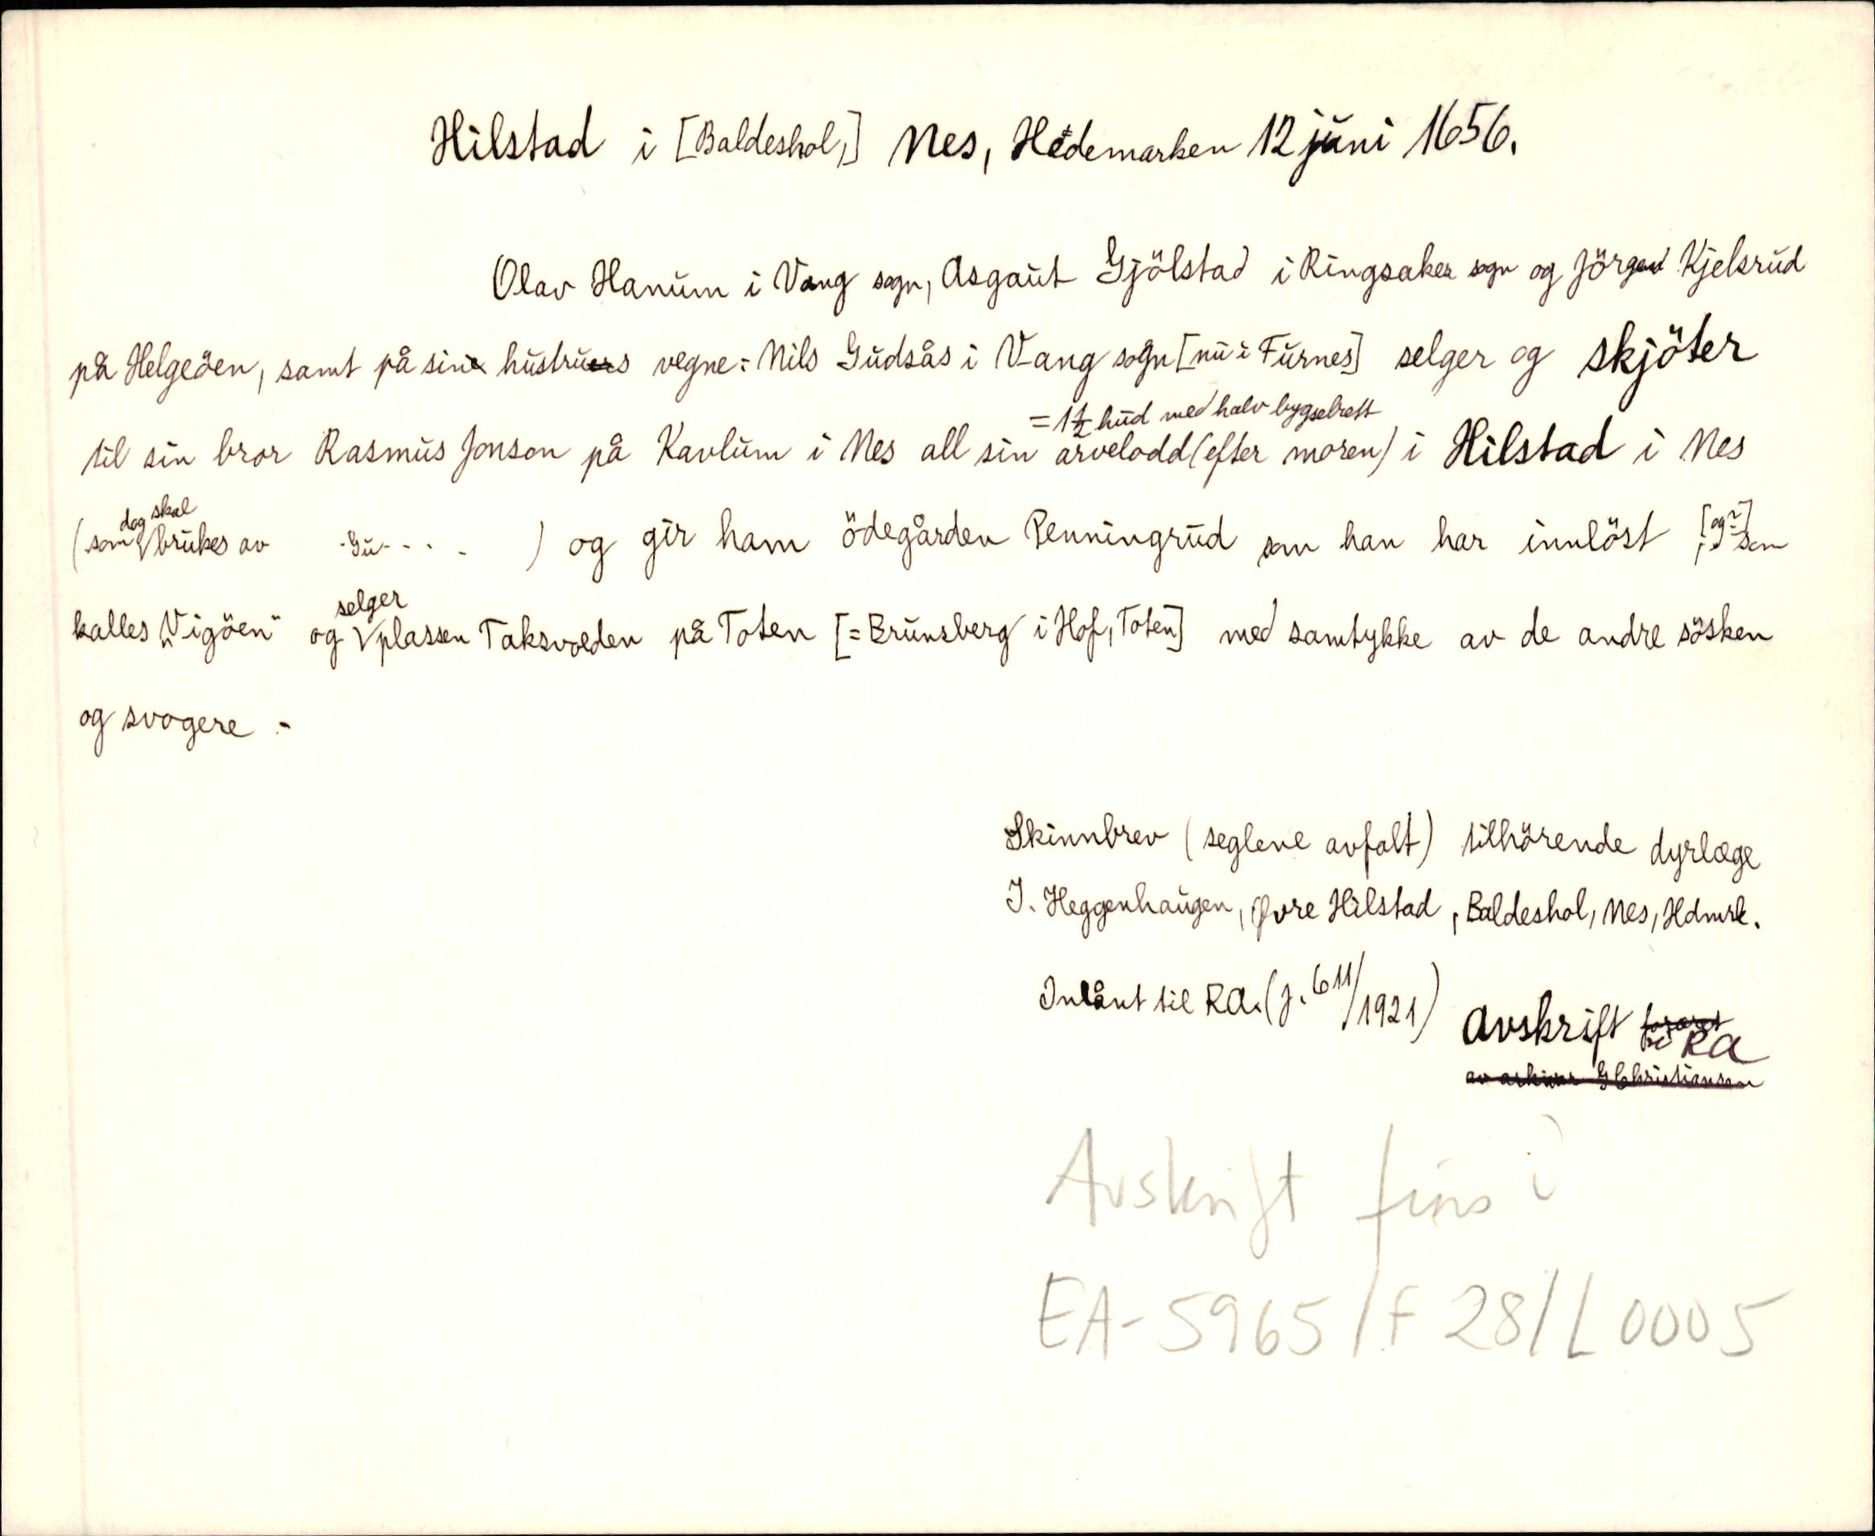 Hilstad i [Baldeshol,] Nes, Hedemarken 12 juni 1656.
Olav Hanum i Vang sogn, Asgaut Gjölstad i Ringsaker sogn og Jörgen Kjelsrud
på Helgeöen, samt på sin hustrus vegne: Nils Gudsås i Vang sogn [nu i Furnes] selger og skjöter
= 1½ hud med halv bygselrett
til sin bror Rasmus Jonson på Kavlum i Nes all sin arvelodd (efter moren) i Hilstad i Nes
dog skal
(som brukes av -Gu- . . . ) og gir ham ödegården Penningrud som han har innlöst, [og?] som
selger
kalles "Vigöen" og plassen Taksvolden på Toten [= Brunsberg i Hof, Toten] med samtykke av de andre sösken
og svogere -
Skinnbrev (seglene avfalt) tilhörende dyrlæge
I. Heggenhaugen, Øvre Hilstad, Baldeshol, Nes, Hdmrk.
Inlånt til RA. (j. 611/1921)
Avskrift i RA
av arkivar G Christiansen
Avskrift fins i
EA-5965/F 28/L 0005